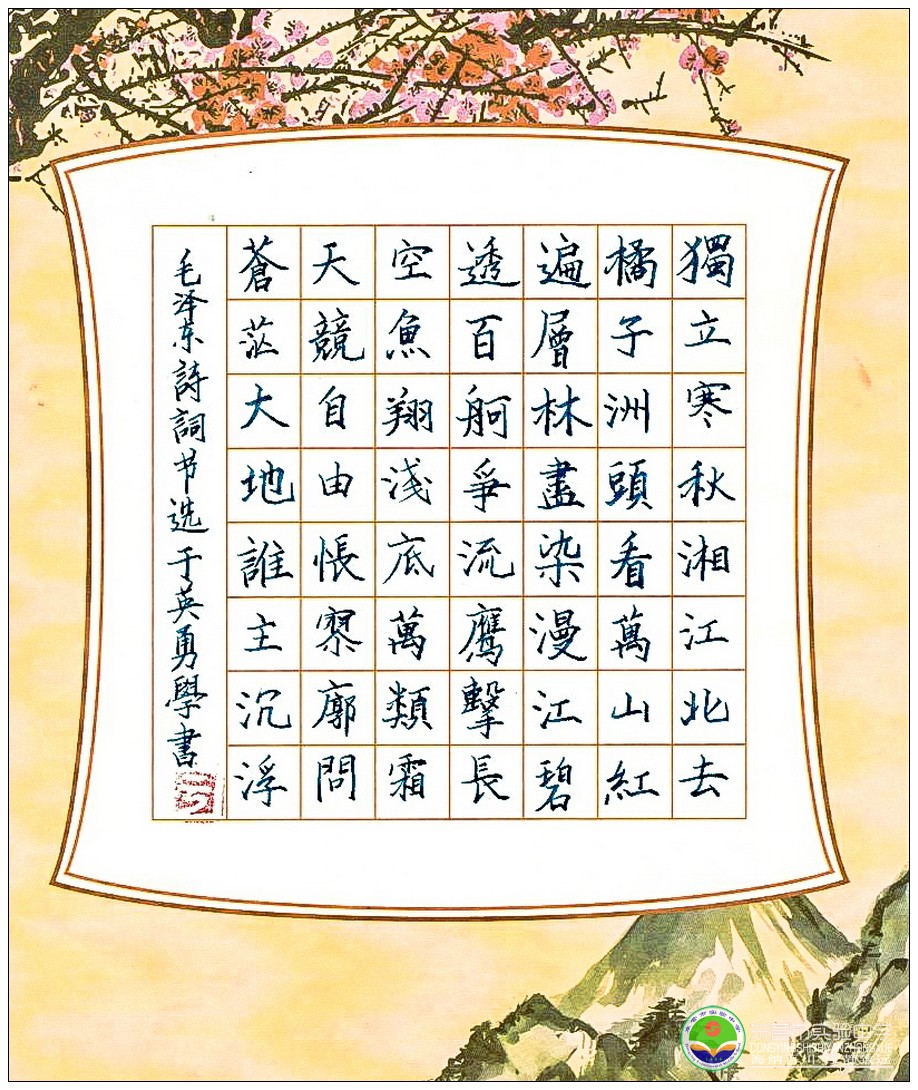 獨立寒秋湘江北去
橘子洲頭看萬山紅
遍層林盡染漫江碧
透百舸爭流鷹擊長
空魚翔淺底萬類霜
天競自由悵寥廓問
蒼茫大地誰主沉浮
毛泽东詩詞节选于英勇學書
DONGYINGSHISHIYANZHONGXUE